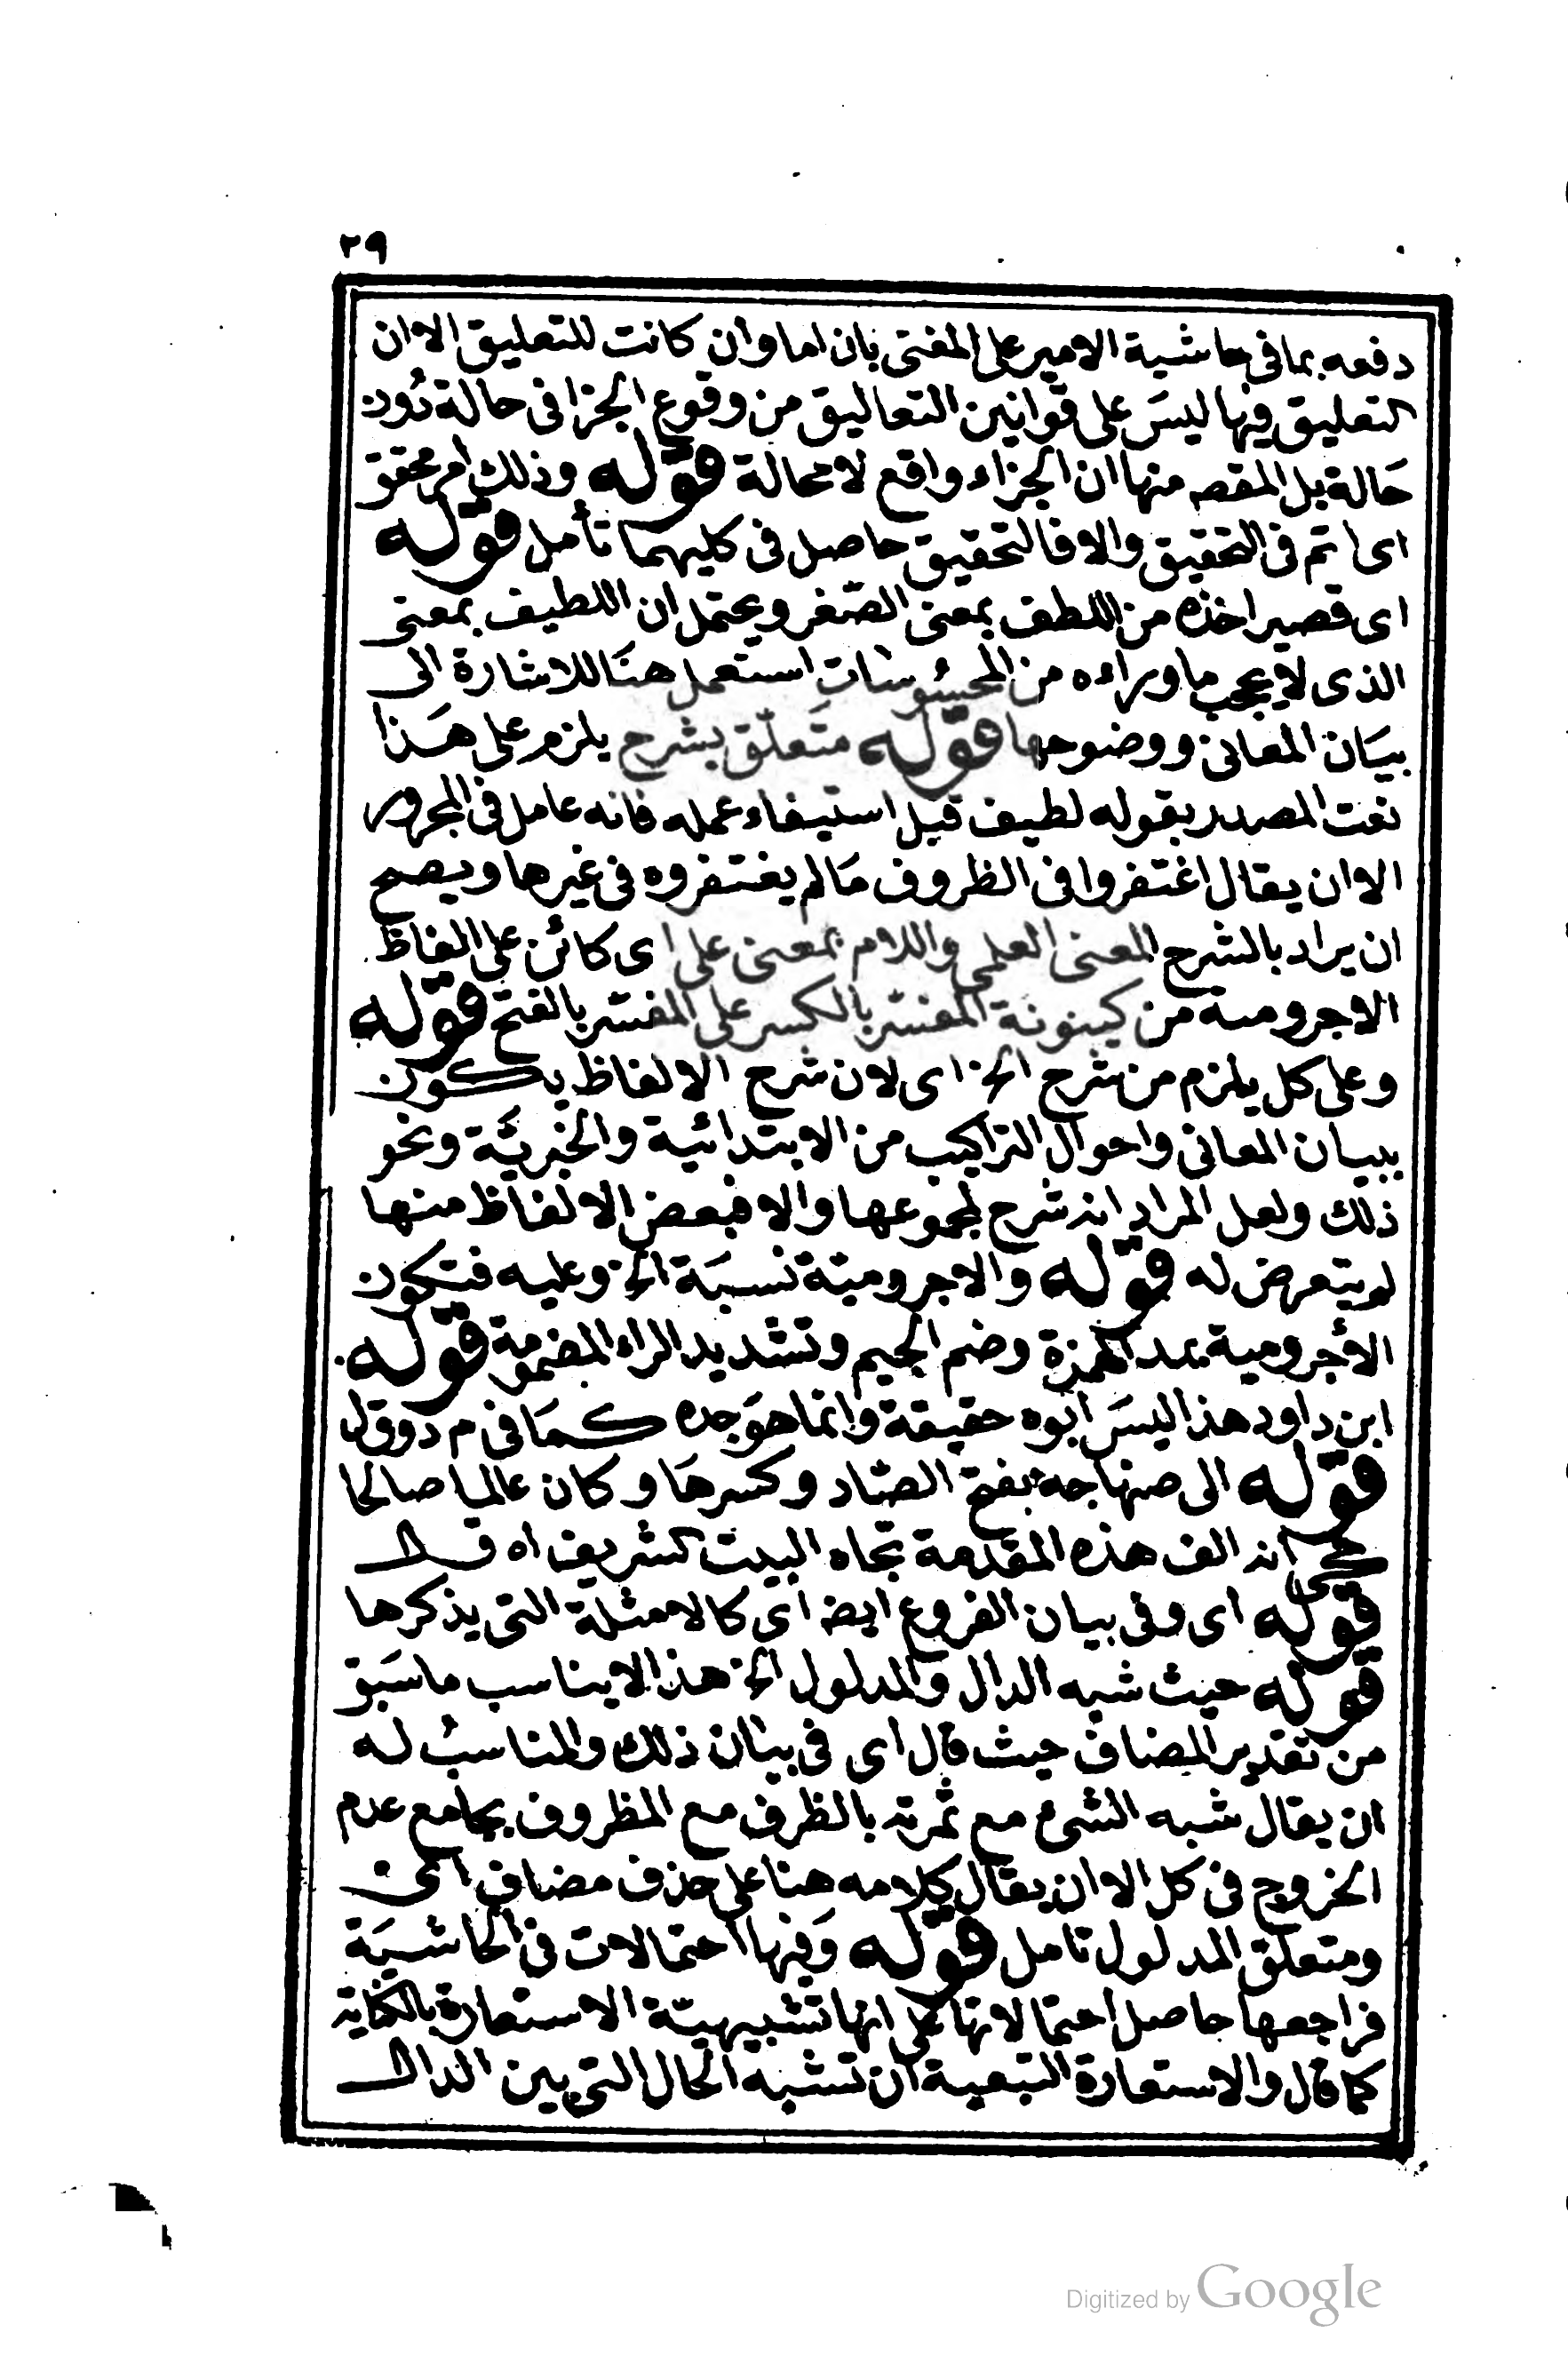 ٢٩
دفعه بما فى حاشية الامير على المغنى بان اما وان كانت للتعليق الا ان
لتعليق فيها ليسَ على قوانين التعاليق من وقوع الجزا فى حالة دُود
حَالة بل المقصه منها ان الجزاء واقع لا محالة قوله وذلك امر محقق
اى اتم فى التحقيق والا فالتحقيق حاصل فى كليهما تأمل قوله
اى قصير اخذه من اللطف بمعنى الصّغر ويحتمل ان اللطيف بمعنى
الذى لا يحجب ماوراءه من المحسُوسَات استعمل هنَا للاشارة الى
بيَان المعانى ووضوحها قوله متَعلّق بشرح يلزم على هَذا
نعت المصدر بقوله لطيف قبل استيفاء عمله فانه عامل فى المجرور
الا ان يقال اغتفروا فى الظروف مَا لم يغتفروه فى غيرها ويصح
ان يراد بالشرح المعنى العلمى واللام بمعنى على اى كائن على الفاظ
الاجرومىه من كينونة المفسّر بالكسر على المفسّر بالفتح قوله
وعلى كل يلزم من شرح الخ اى لان شرح الالفاظ يكون
ببيان المعانى واحوال التراكيب من الابتدائية والخبريَّة ونحو
ذلك ولعل المراد انه شرح لمجموعها والا فبعض الالفاظ منها
لم يتعرض له قوله والاجروميّة نسبَة الخ وعليه فتكون
الأجرومية بمد الهمزة وضم الجيم وتشديد الراء المضمومة قوله
ابن داود هذا ليسَ ابوه حقيقة وانما هوَ جده كمَا فى م د وق ل
قوله الى صنهاجه بفتح الصّاد وكسرهَا وكان عالما صالحا
حكى انه الف هذه المقدمة تجاه البيت لشريف اه ق ل
قوله اى وفى بيان الفروع ايضه اى كالامثلة التى يذكرها
قوله حيث شبه الدال والمدلول الخ هذا لا يناسب ماسَبق
من تقدير المضاف حيث قال اى فى بيَان ذلك والمناسبُ له
ان يقال شبه الشىء مع ثمرته بالظرف مع المظروف بجامع عدم
الخروج فى كل الا ان يقال كلامه هنا على حذف مضاف اى
ومتعلق المدلول تامل قوله وَفيها احتمالات فى الحاشيَة
فراجعها حاصل احتمالاتها على انها تشبيهيّة الاستعارة بالكناية
كما قال والاستعارة التبعية ان تشبه الحال التى بين الدال
Digitized by Google